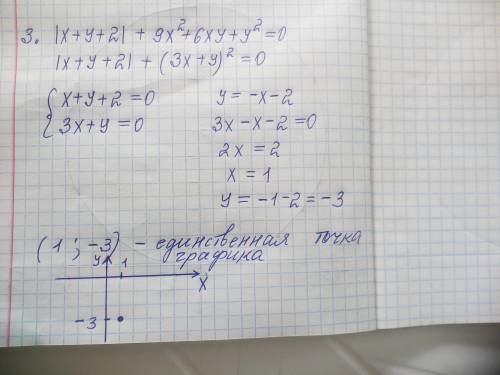 3. |x+y+2| + 9x²+6xy+y²=0
|x+y+2| + (3x+y)² = 0
{ x+y+2 = 0
3x+y = 0
y = -x-2
3x-x-2=0
2x = 2
x = 1
y = -1-2 = -3
(1; -3) - единственная точка
графика
y 1
x
-3